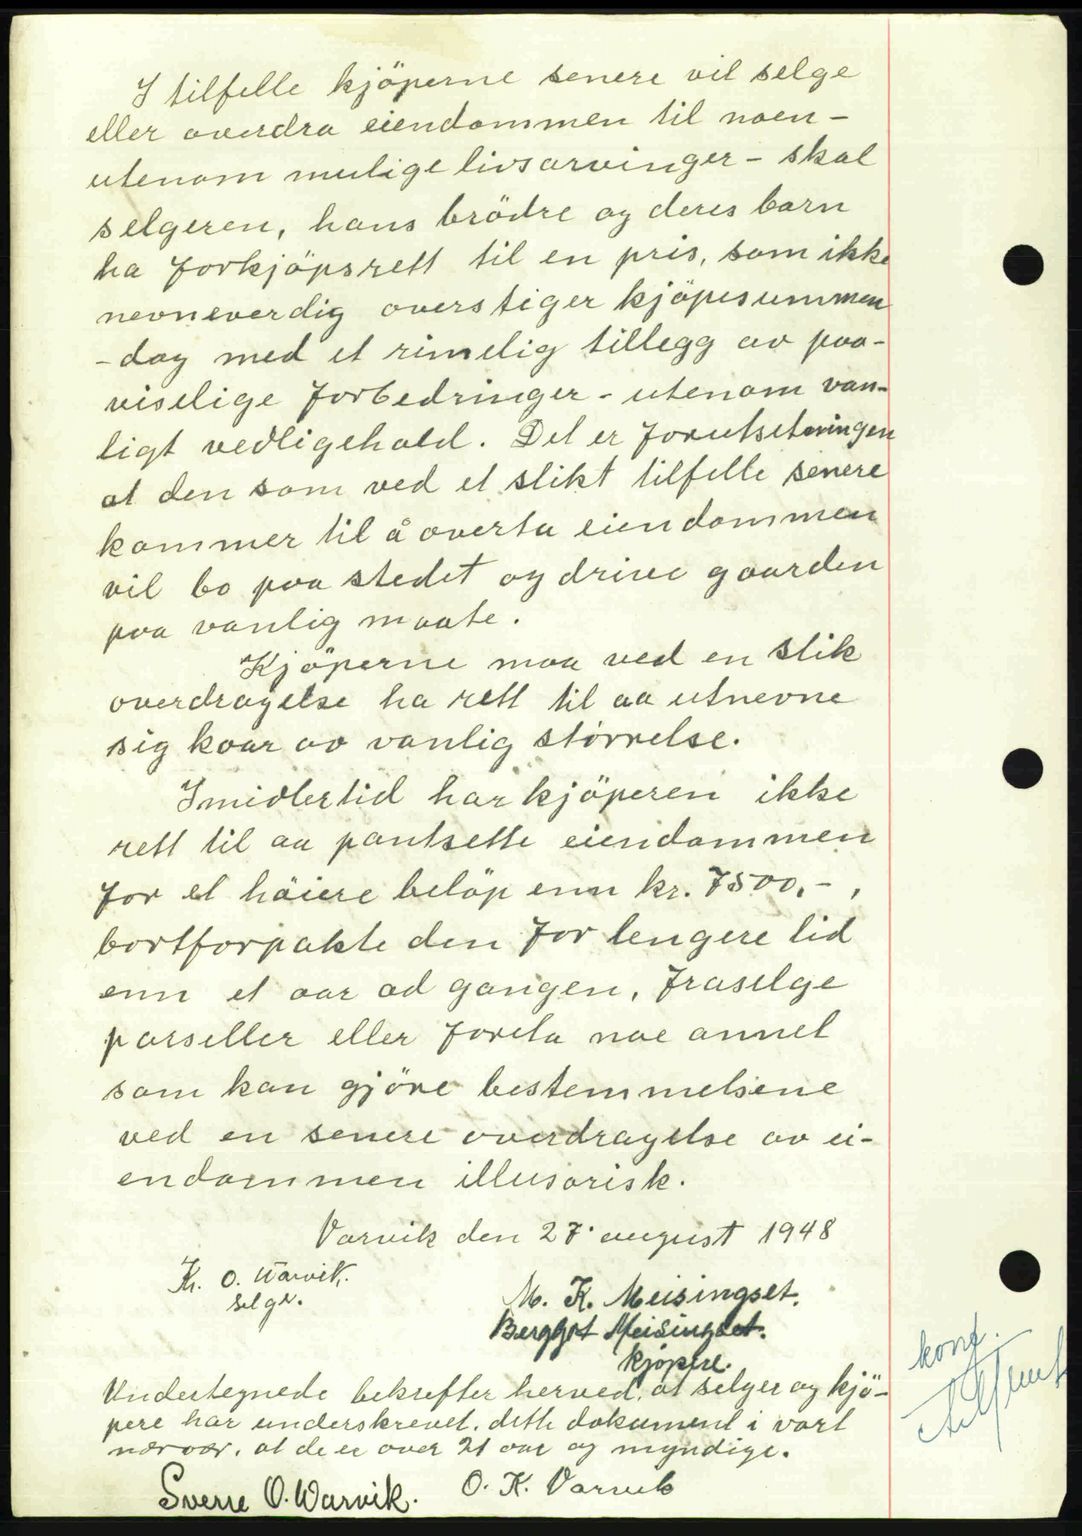 I tilfelle kjöperne senere vil selge
eller overdra eiendommen til noen -
utenom mulige livsarvinger - skal
selgeren, hans brödre og deres barn
ha forkjöpsrett til en pris, som ikke
nevneverdig overstiger kjöpesummen
- dog med et rimelig tillegg av paa-
viselige forbedringer - utenom van-
ligt vedligehold. Det er forutsetningen
at den som ved et slikt tilfelle senere
kommer til å overta eiendommen
vil bo paa stedet og drive gaarden
paa vanlig maate.
Kjöperne maa ved en slik
overdragelse ha rett til aa utnevne
sig kaar av vanlig störrelse.
Imidlertid har kjöperen ikke
rett til aa pantsette eiendommen
for et höiere belöp enn kr. 7500,- ,
bortforpakte den for lengere tid
enn et aar ad gangen, fraselge
parseller eller foreta noe annet
som kan gjöre bestemmelsene
ved en senere overdragelse av ei-
endommen illusorisk.
Varvik den 27. august 1948
K. O. Warvik.
selger.
M. K. Meisingset.
Bergljot Meisingset.
kjöpere.
Undertegnede bekrefter herved, at selger og kjö-
pere har underskrevet dette dokument i vort
nærvær, at de er over 21 aar og myndige.
Sverre O. Warvik. O. K. Varvik
konf.